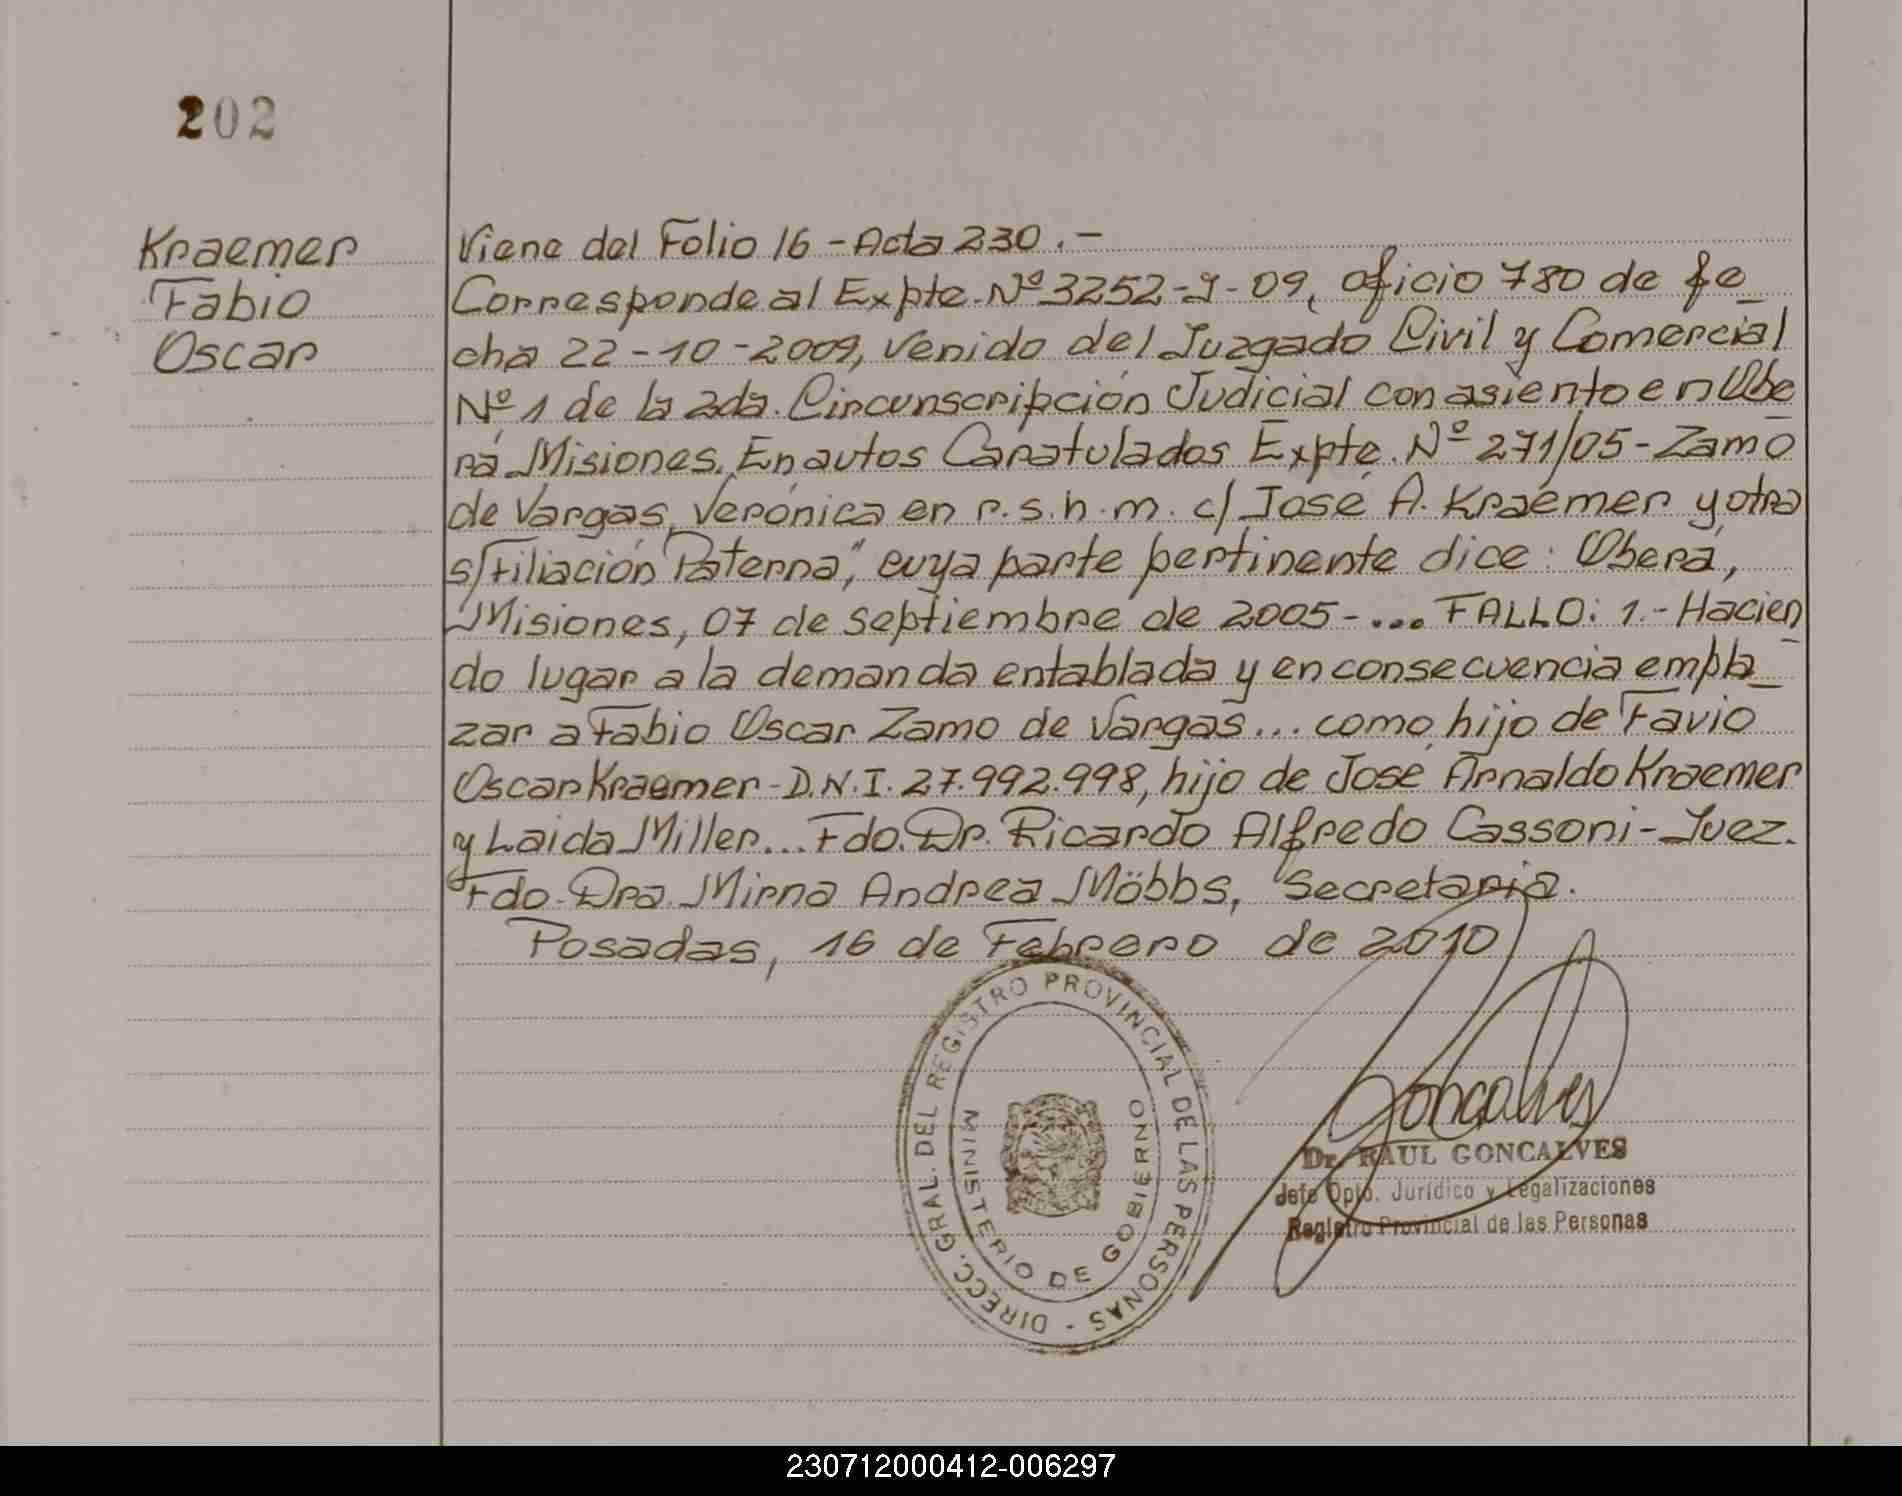 202
Kraemer
Fabio
Oscar
Viene del Folio 16 - Acta 230.-
Corresponde al Expte. Nº 3252-J-09, oficio 780 de fe_
cha 22-10-2009, venido del Juzgado Civil y Comercial
Nº 1 de la 2da. Circunscripción Judicial con asiento en Obe_
rá Misiones. En autos Caratulados Expte. Nº 271/05 - Zamo
de Vargas, Verónica en r.s.h.m. c/ José A. Kraemer y otra
s/Filiación Paterna", cuya parte pertinente dice: Oberá,
Misiones, 07 de septiembre de 2005-... FALLO: 1.- Hacien_
do lugar a la demanda entablada y en consecuencia empla_
zar a Fabio Oscar Zamo de Vargas... como hijo de Favio
Oscar Kraemer - D.N.I. 27.992.998, hijo de José Arnaldo Kraemer
y Laida Miller... Fdo. Dr. Ricardo Alfredo Cassoni - Juez.
Fdo. Dra. Mirna Andrea Möbbs, Secretaria.
Posadas, 16 de Febrero de 2010
DIRECC. GRAL. DEL REGISTRO PROVINCIAL DE LAS PERSONAS -
MINISTERIO DE GOBIERNO
Goncalves
Dr. RAUL GONCALVES
Jefe Dpto. Jurídico y Legalizaciones
Registro Provincial de las Personas
230712000412-006297